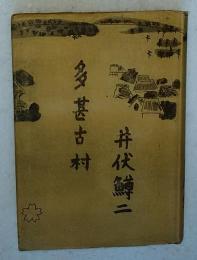 多甚古村
井伏鱒二